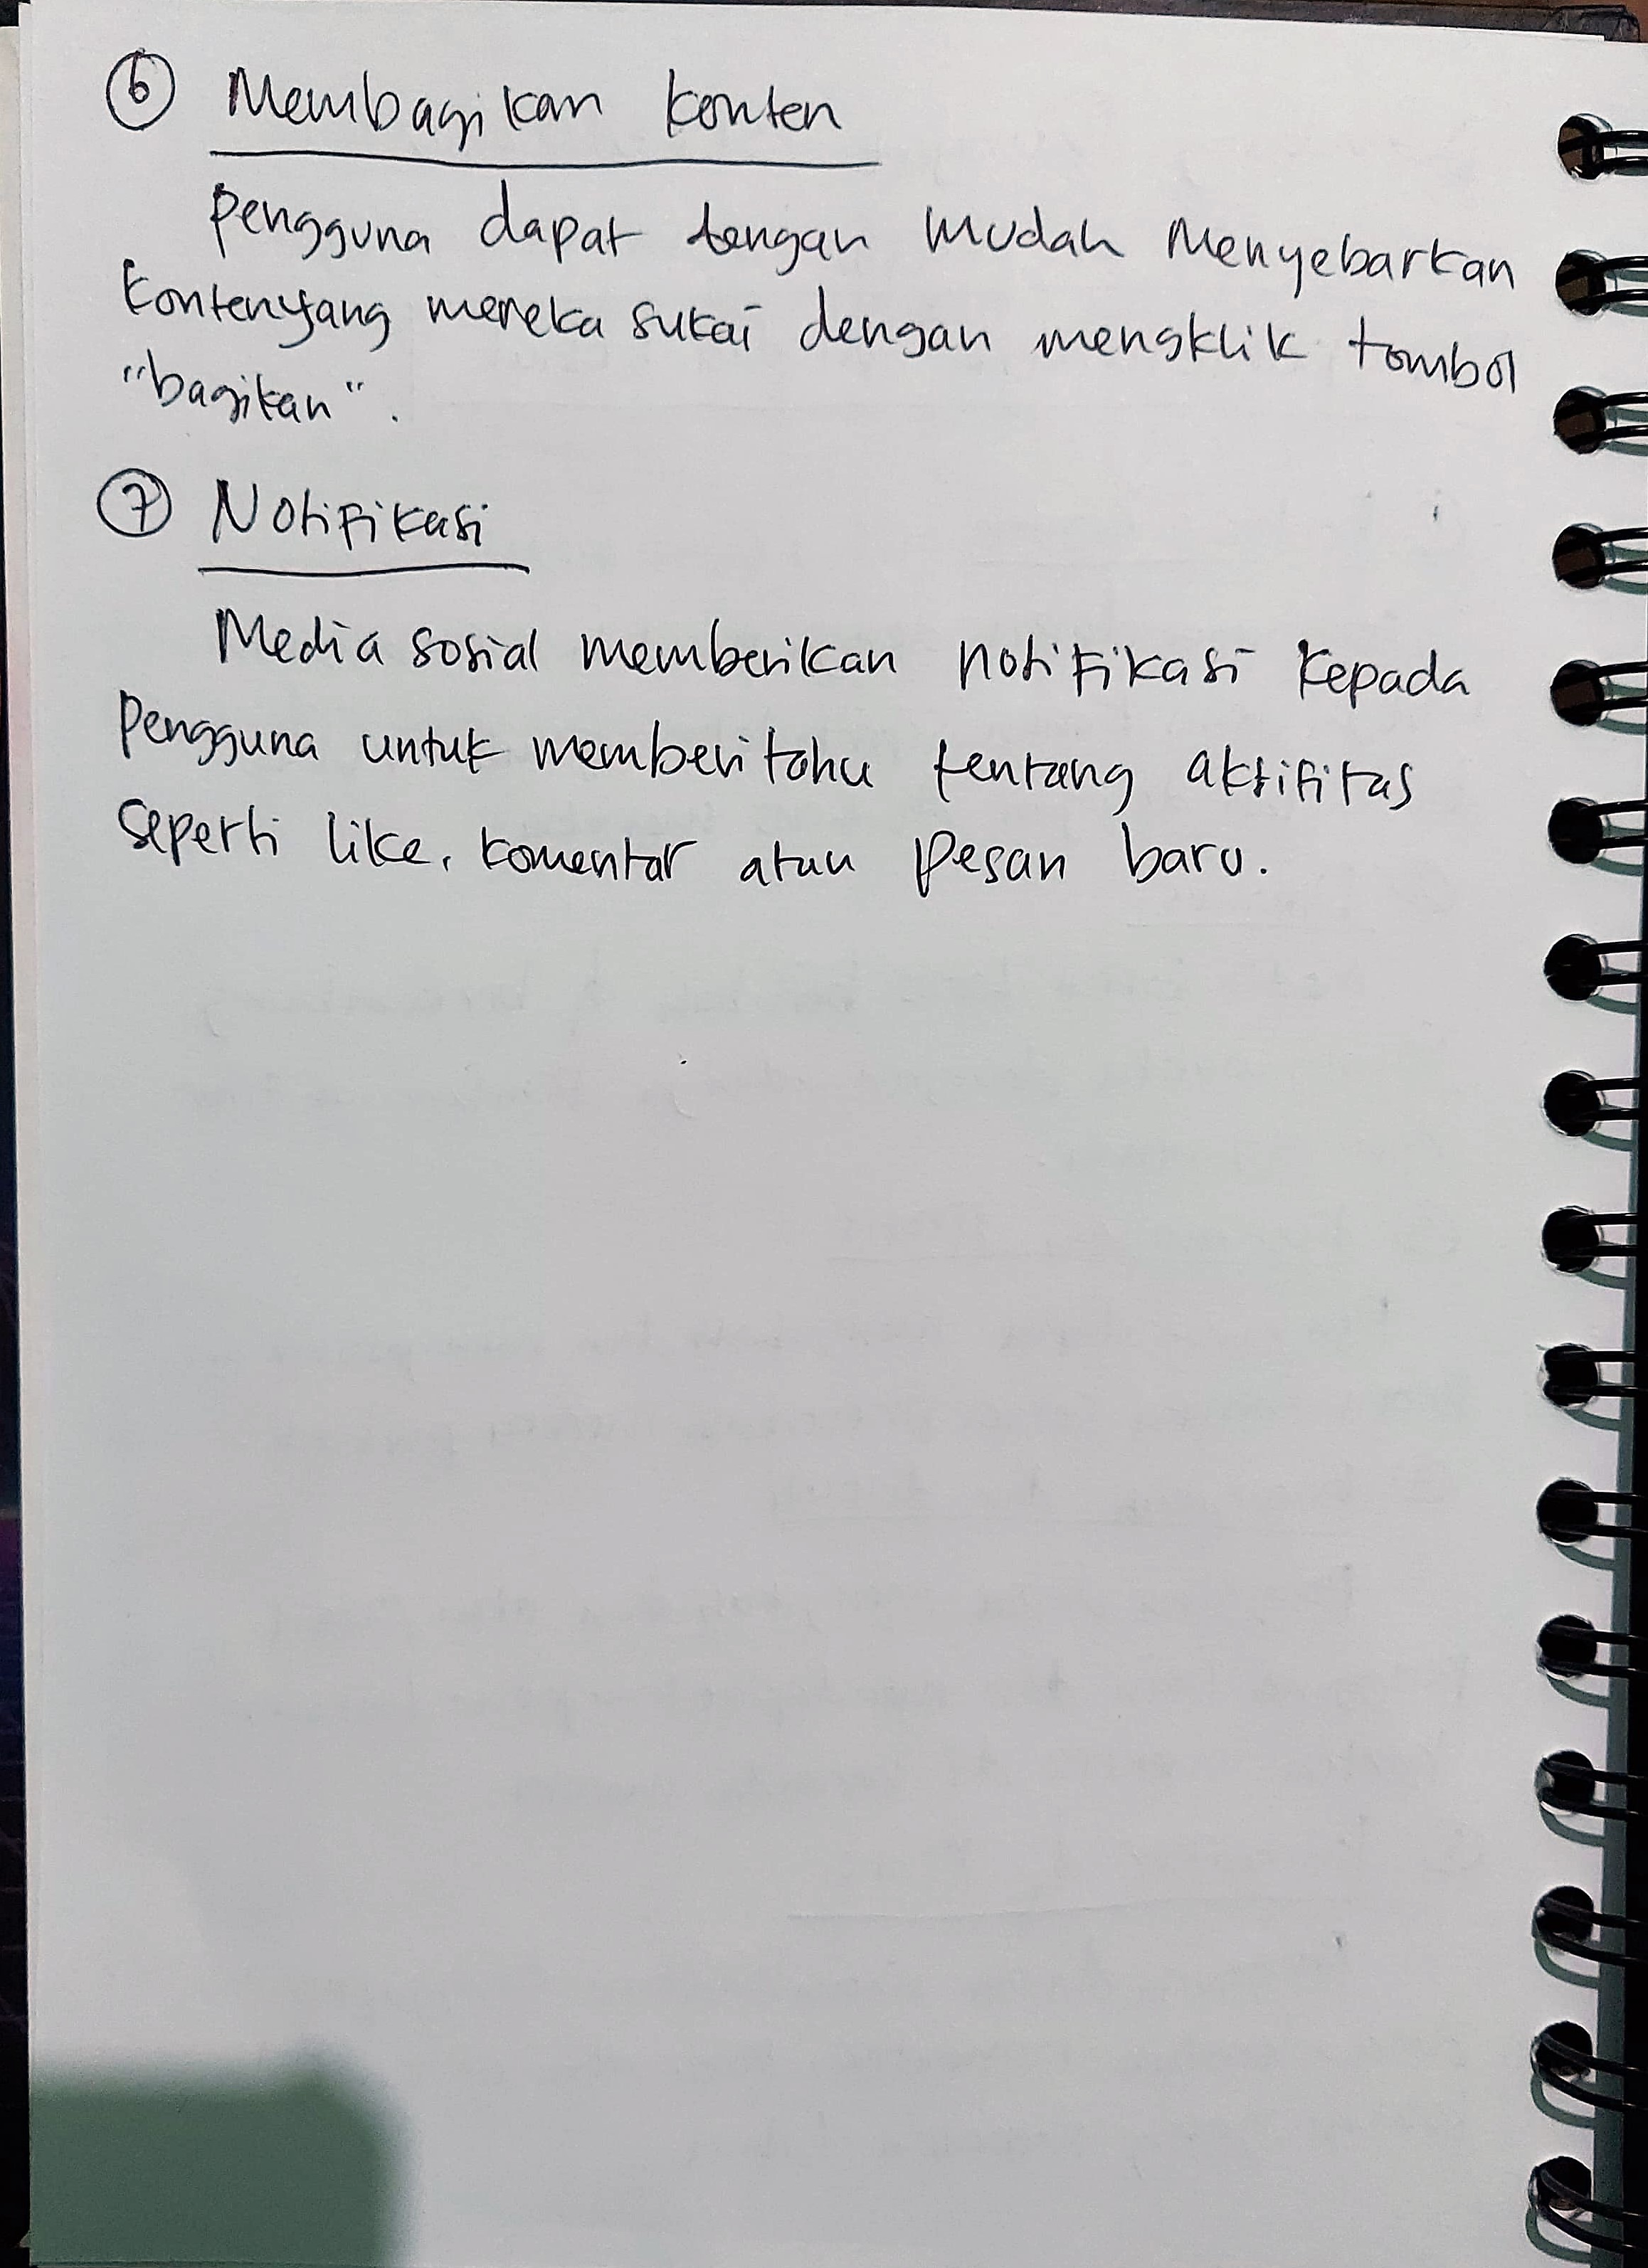 ⑥ Membagikan konten
Pengguna dapat dengan mudah Menyebarkan
Konten yang mereka sukai dengan mengklik tombol
"bagikan".
⑦ Notifikasi
Media sosial memberikan notifikasi kepada
Pengguna untuk memberitahu tentang aktifitas
Seperti like, komentar atau pesan baru.